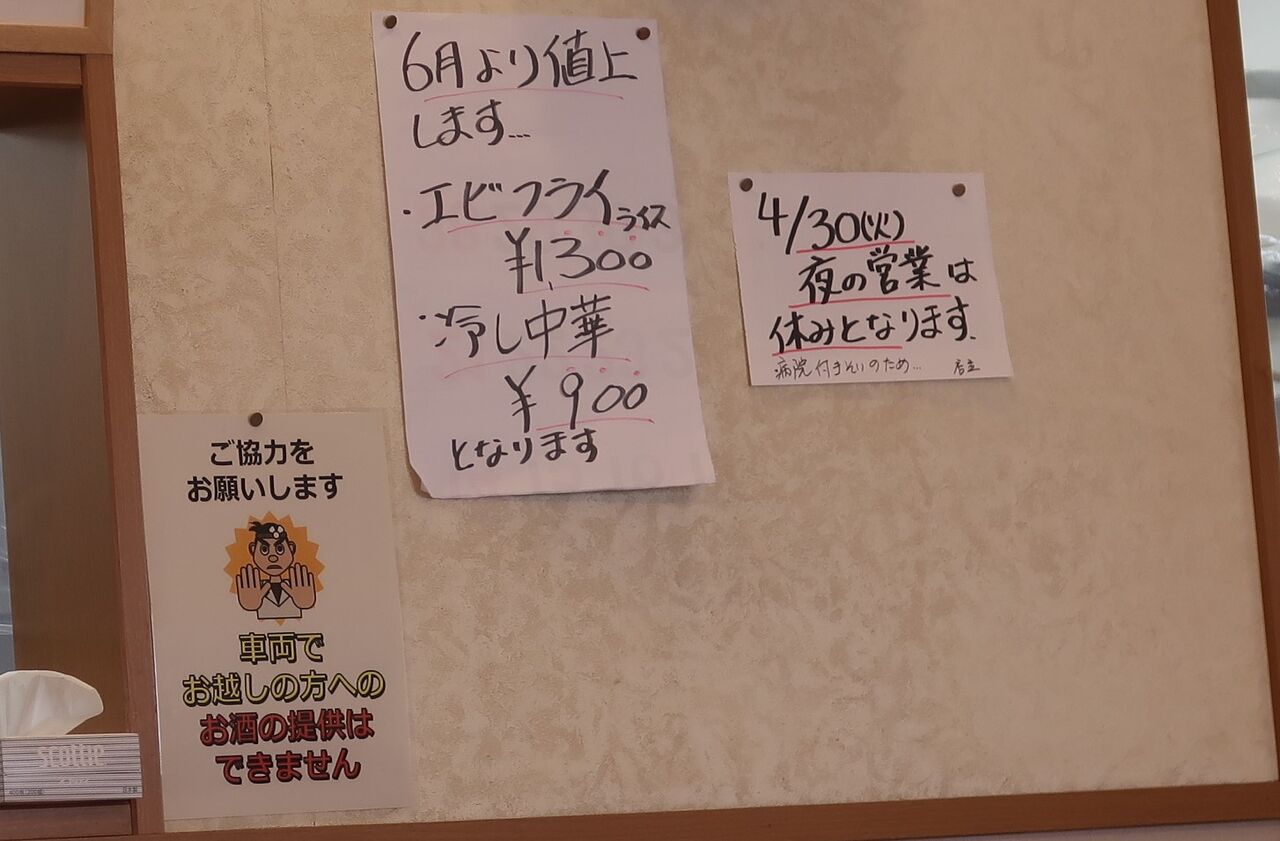 6月より値上
します...
・エビフライライス
¥1,300
・冷し中華
¥900
となります
4/30(火)
夜の営業は
休みとなります.
病院付きそいのため... 店主
ご協力を
お願いします
車両で
お越しの方への
お酒の提供は
できません
scottie